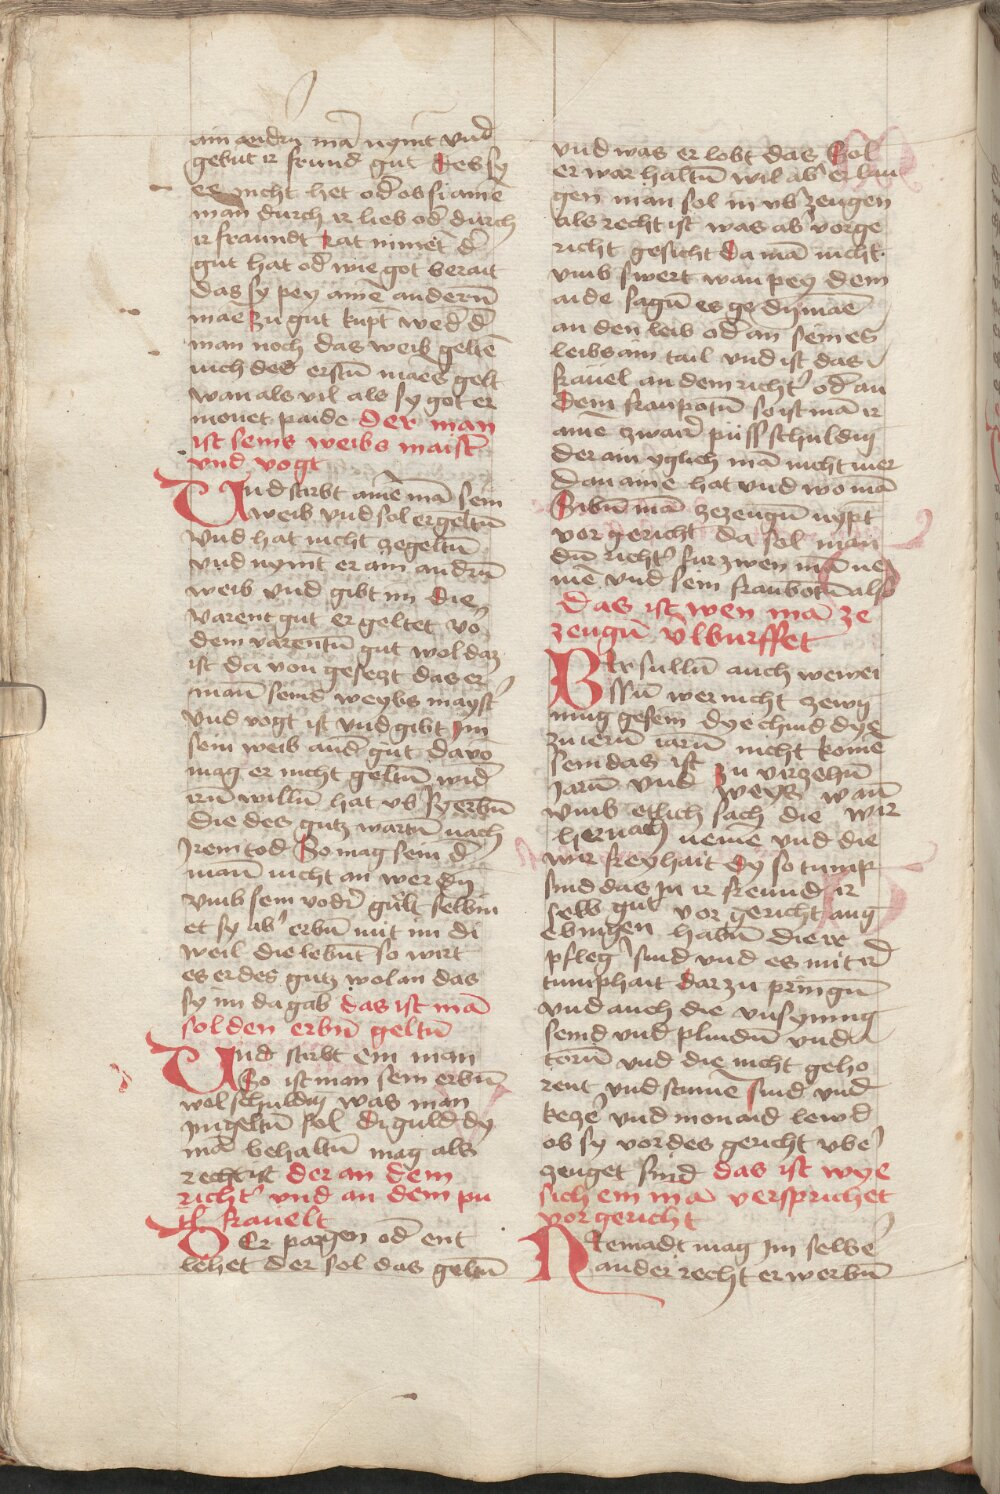 ain andrn mā nymt vnd
gebut ir frund gut Des sy
ee nicht het od ob si ainē
man durch ir lieb od durch
ir fraundt Rat nimet d
gut hat od wie got berait
das sy pey ainē anderū
mae zu gut kupt wed d
man noch das weib geltē
nich des erstū maes gelt
wan als vil als sy got er
monet paide der man
ist seins weibs maist
vnd vogt
Vnd starbt ainē mā sein
weib vnd sol er geltū
vnd hat nicht zegeltū
vnd nymt er ain andrū
weib vnd gibt im Die
varent gut er geltet vō
dem varentū gut wol daz
ist da von gesetzt das er
man seind weybs mayst
vnd vogt ist vnd gibt Im
sein weib and gut davō
mag er nicht geltū wid
irū willū hat vb sy erbū
die des gutz wartū nach
Irem tod So mag sein d
man nicht an werdn
vmb sein vodr gult selbm
et sy ab erbū mit im di
weil die lebūt so wirt
es er des gutz wol an das
sy im da gab das ist mā
sol den erbn geltū
Vnd stirbt ein man
So ist man sein erbū
wol schuldig was man
In geltū sol Di guld dy
mā behaltū mag als
recht ist der an dem
richt vnd an dem pu
tl frauelt
Er pargen od ent
lehet der sol das geltū
vnd was er lobt das Sol
er war haltū wil ab er lau
gen man sol in vb zeugen
als recht ist was ab vor ge
richt gesicht Da mā nicht
vmb swert wan pey dem
aide sagū es ge dymae
an den leib od an seines
leibs ain tail vnd ist das
frauel an dem richt od an
Dem franpotū so ist mā ir
ainē zwair püss schuldig
der ain yglich mā nicht mer
Dan aine hat vnd wo mā
Sibū mā zezeugū nypt
vor gericht da sol man
dū richt fur zwen mā ne
mē vnd sein franbotū als
das ist wen mā ze
zeugū vlburffet
Wir sullū auch wewei
ssū wer nicht zewg
nuig gesein dye chind dye
zu ierū iarū nicht komē
sein das ist zu virzehū
Jarū vnd weyß wan
vmb etlich sach die wir
hernach nemē vnd die
wir freyhait Dy so tump
sind das In ir freund ir
selb gut vor gericht ang
ebingen habū die ir
pfleg sind vnd es mit ir
tumphait Dar zu pringū
vnd auch die vnsynnig
seind vnd plindū vnd
torū vnd die nicht geho
rent vnd stumē sind vnd
kezē vnd monaid lewd
ob sy vor des gericht vbe
zeuget sind das ist wye
sich ein mā versprichet
vor gericht
Niemadt mag Im selbē
ander recht er werbū